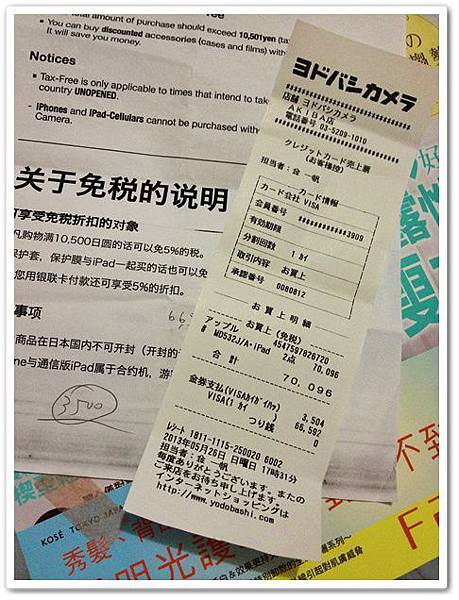 total amount of purchase should exceed 10,501yen (ta
You can buy discounted accessories (cases and films) with
It will save you money.
Notices
Tax-Free is only applicable to times that intend to take
country UNOPENED.
iPhones and iPad-Cellulars cannot be purchased with
Camera.
关于免税的说明
可享受免税折扣的对象
凡购物满10,500日圆的话可以免5%的税。
保护套、保护膜与iPad一起买的话也可以免
您用银联卡付款还可享受5%的折扣。
事项
商品在日本国内不可开封（开封的话
ne与通信版iPad属于合约机，游
3500
ヨドバシカメラ
店舗 ヨドバシカメラ
AKIBA店
電話番号 03-5209-1010
クレジットカード売上票
(お客様控)
担当者：倉 一帆
カード情報
カード会社 VISA
会員番号 ############3909
有効期限
分割回数 1 ｶｲ
取引内容 お買上
承認番号 0080812
お買上明細
お買上(免税)
アップル 4547597826720
# MD532J/A･iPad 2点 70,096
合計 70,096
金券支払(VISAｶｲｶﾞｲﾊﾂ) 3,504
VISA(1 ｶｲ ) 66,592
つり銭 0
ﾚｼｰﾄ 1811-1115-250020 6002
2013年05月26日 日曜日 17時31分
担当者：倉 一帆
毎度ありがとうございます。またの
ご来店をお待ち申し上げます。
インターネットショッピングは
http://www.yodobashi.com
KOSÉ TOKYO JAPAN
秀髮、背部
明光護
不到